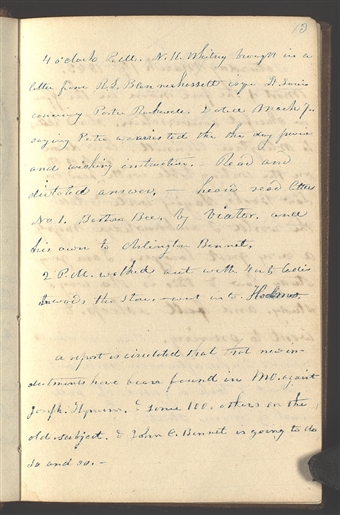 13
4 o'clock P.M. N. K. Whitney brought in a
letter from H. S. Blannerhassett esqr St Louis
concerning Porter Rockwell. dated March 7.
saying Porter was arrested the day previous
and wishing instruction. — Read and
dictated answer. — heard read letter
No 1. Boston Bee. by Viator. and
his own to Arlington Bennet.
2 P.M. walked out with ladies
towards the Store. — went into Hodmes.
a report is circulated that new in-
dictments have been found in MO. against
Joseph. Hyrum. & some 100. others on the
old subject. & John C. Bennet is going to do
so and so. —